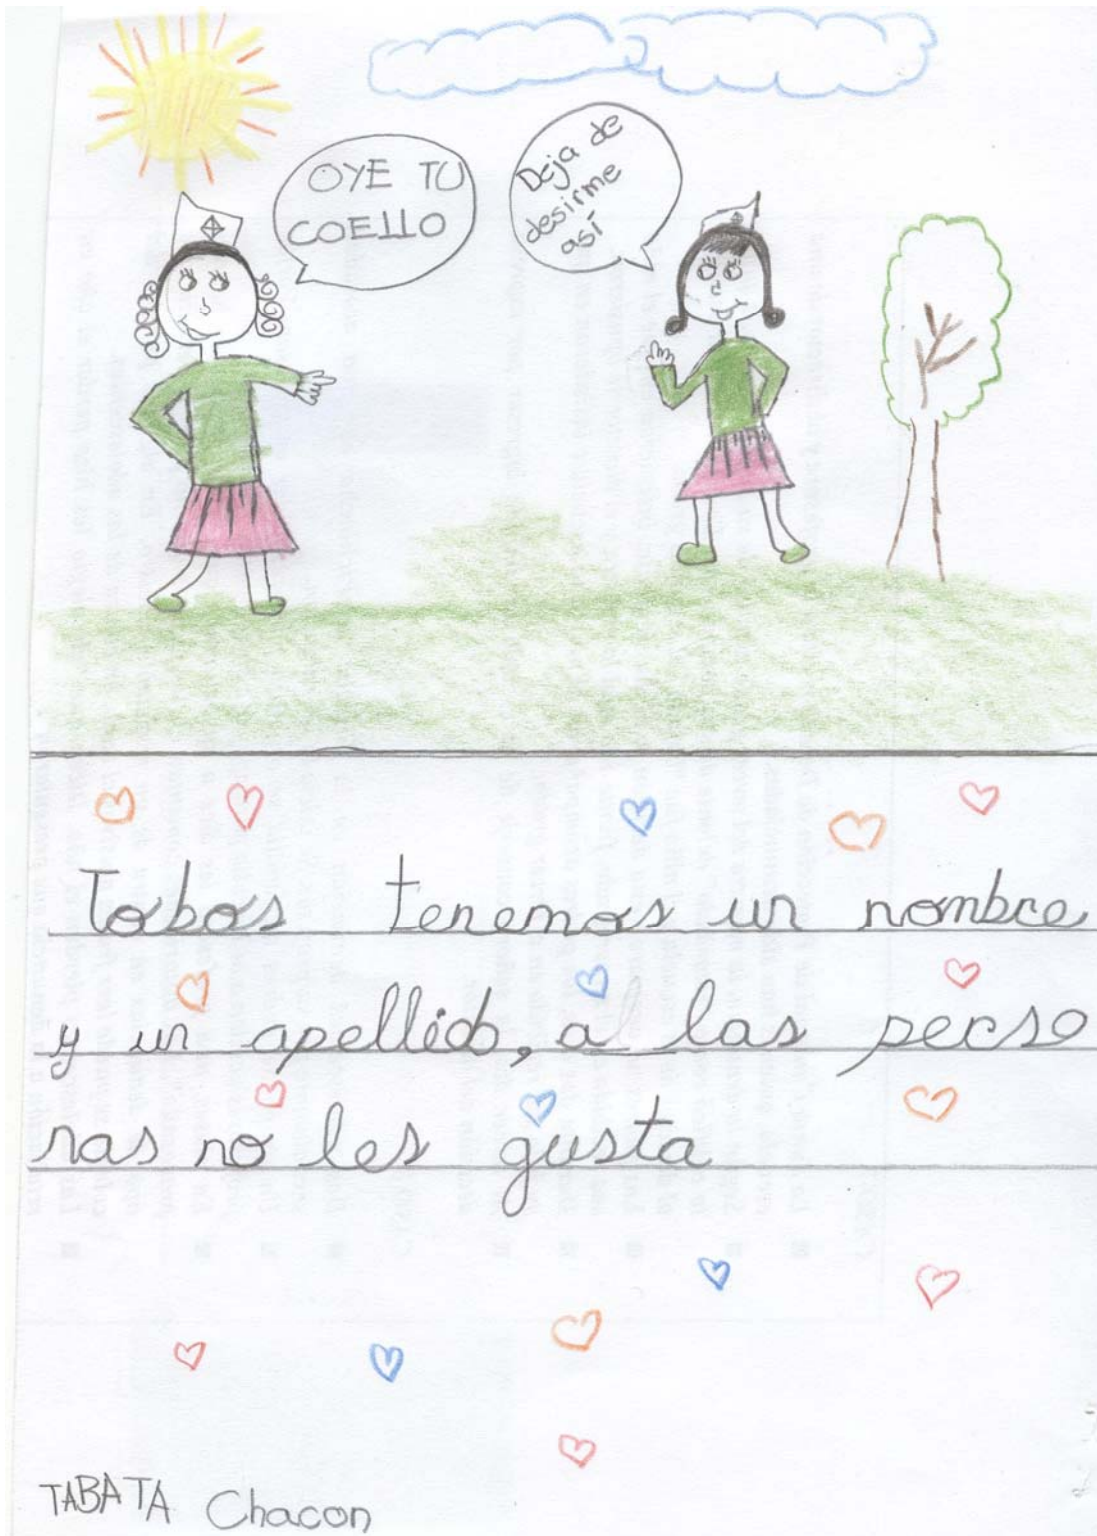 OYE TU
COELLO
Deja de
desirme
así
Tobos tenemos un nombre
y un apellido, a las perso
nas no les gusta
TABATA Chacon